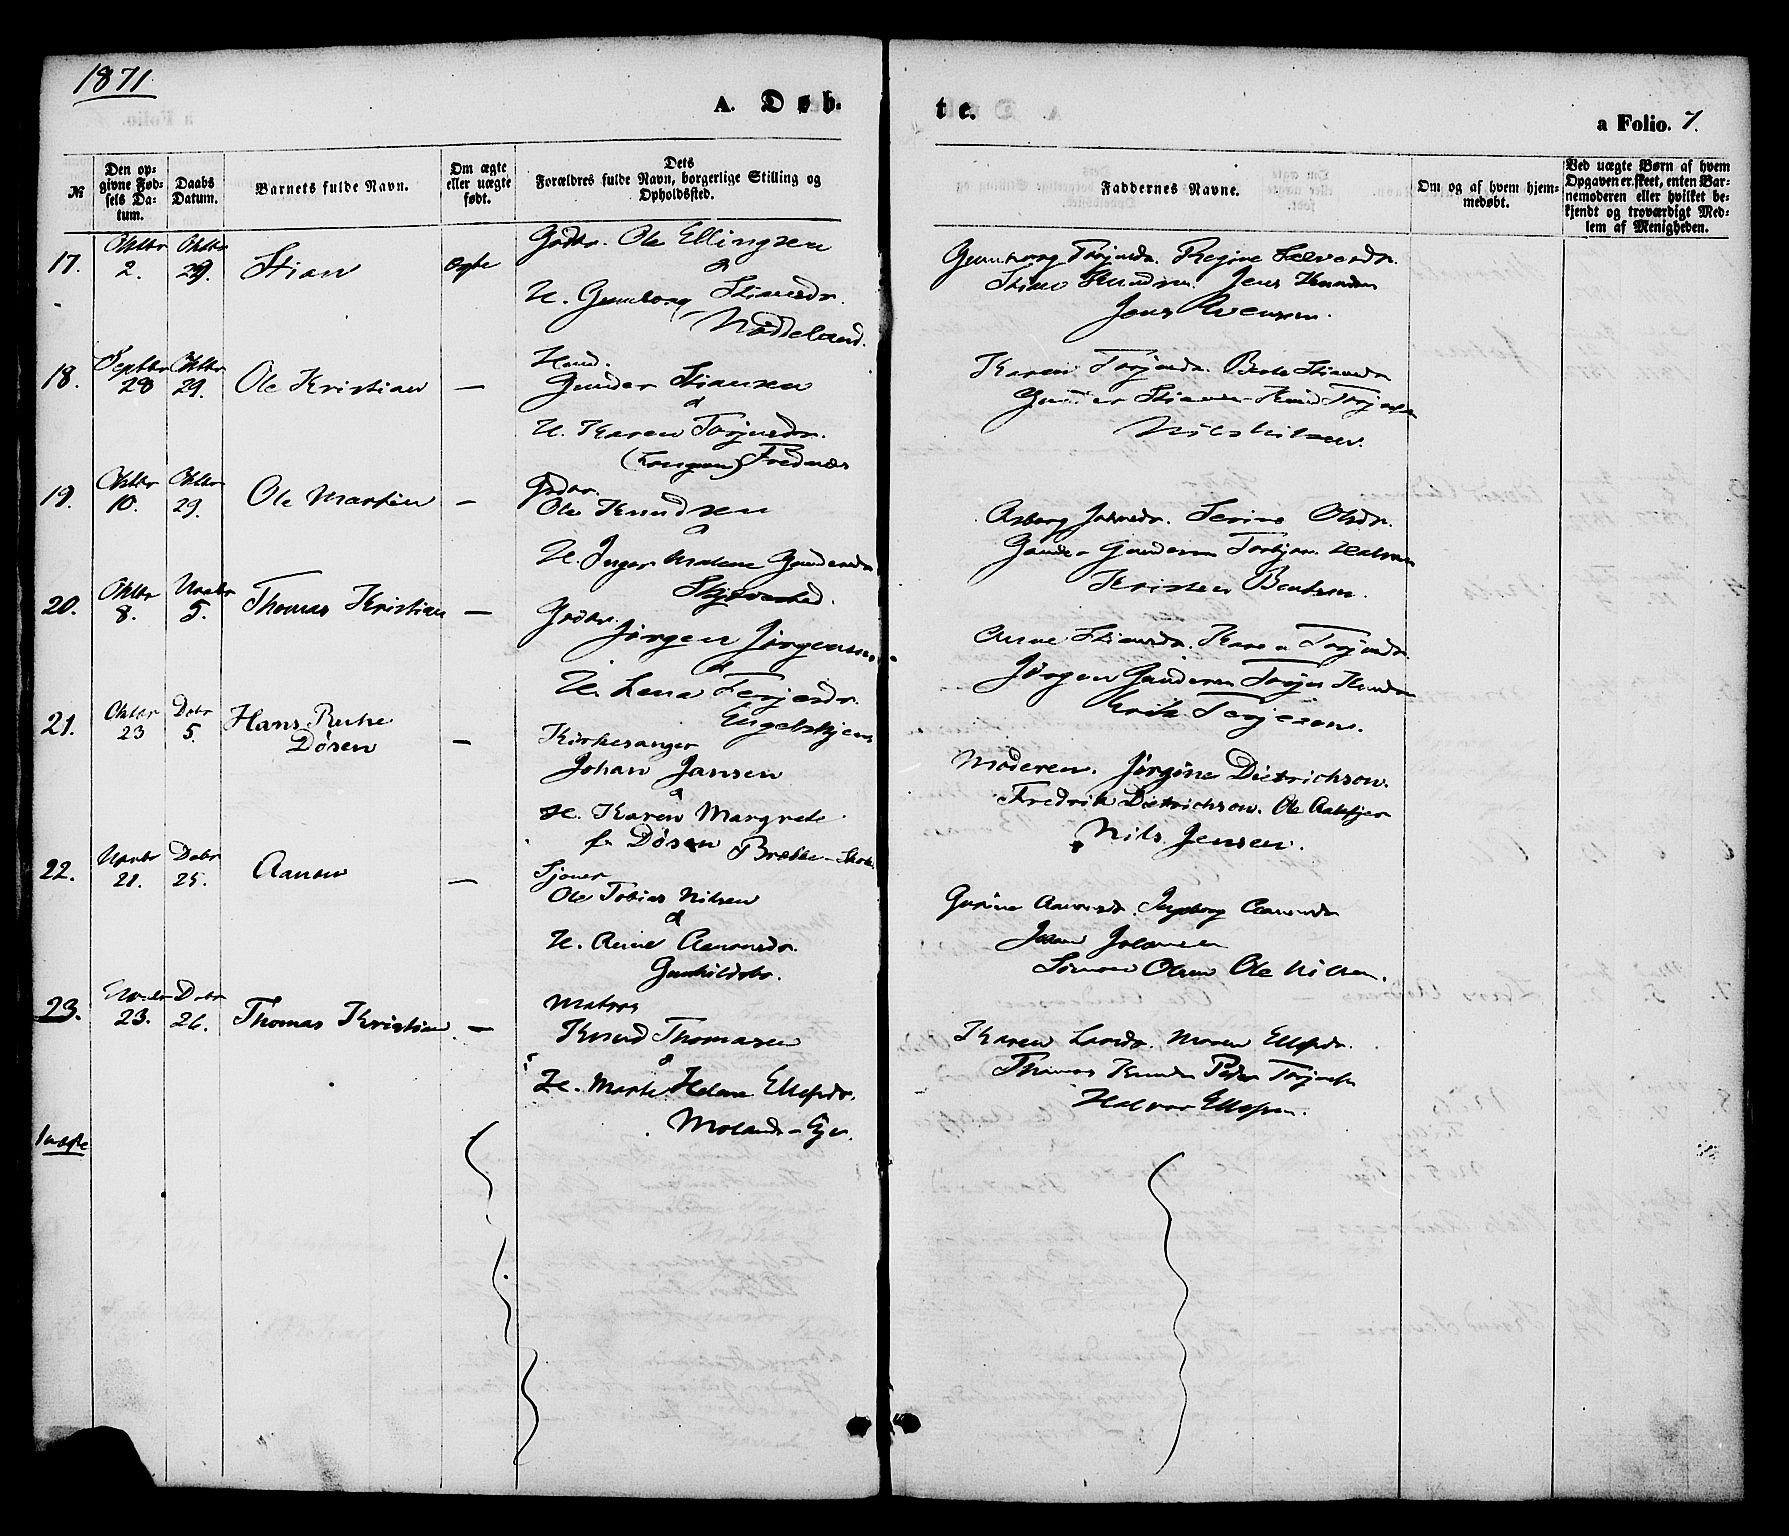 1871
A. Døb-
te.
a Folio. 7.
№
Den op-
givne Fød-
sels Da-
tum.
Daabs
Datum.
Barnets fulde Navn.
Om ægte
eller uægte
født.
Dets
Forældres fulde Navn, borgerlige Stilling og
Opholdssted.
Faddernes Navne.
Om og af hvem hjem-
medøbt.
Ved uægte Børn af hvem
Opgaven er skeet, enten Bar-
nemoderen eller hvilket be-
kjendt og troværdigt Med-
lem af Menigheden.
17.
Oktbr
2.
Oktbr
29.
Stian
Ægte
Gdbr. Ole Ellingsen
&
H. Gunborg Stiansdr.
Nødeland.
Gunborg Torjusdr. Regine
Stian Knudsen. Jens Knudsen
Jens
18.
Septbr
28
Oktbr
29.
Ole Kristian
—
Gunder Stiansen
&
H. Karen Torjusdr.
Frednes
Karen Torjusdr. Berte Stiansdr
Gunder Stiansen Knud Torjusen
Nils Nilsen.
19.
Oktbr
10.
Oktbr
29.
Ole Martin
—
Gdbr.
Ole Knudsen
&
H. Inger Malene Gundersdr
Asborg Serine Olsdr.
Gunder Gundersen Torbjørn Halvorsen
Kristen Bentsen.
20.
Oktbr
8.
Novbr
5.
Thomas Kristian
—
Gdbr.
Jørgen Jørgensen
&
H. Lena Terjesdr.
Engelskjøn
Anne Stiansdr. Karen Torjusdr.
Jørgen Gundersen Torjus Knudsen
Erik Terjesen.
21.
Oktbr
23
Debr
5.
Hans
Døsen
—
Kirkesanger
Johan Jansen
&
H. Karen Margrete
f. Døsen Brekke-
Moderen. Jørgine Dietrichson.
Fredrik Dietrichson. Ole
Nils Jensen.
22.
Novbr
21.
Debr
25.
Aanon
—
Ole Tobias Nilsen
&
H. Anne Aanonsdr.
Gunhildsbo.
Gurine Aanonsdr. Ingeborg Aanonsdr
Simon Olsen Ole Nilsen.
23.
Novbr
23.
Debr
26.
Thomas Kristian
—
Matros
Knud Thomasen
&
H. Marte Helene Ellefsdr.
Moland-Ejer.
Karen Larsdr. Maren Ellefsdr.
Thomas Knudsen Peder Torjusen
Halvor Ellefsen.
1 uægte